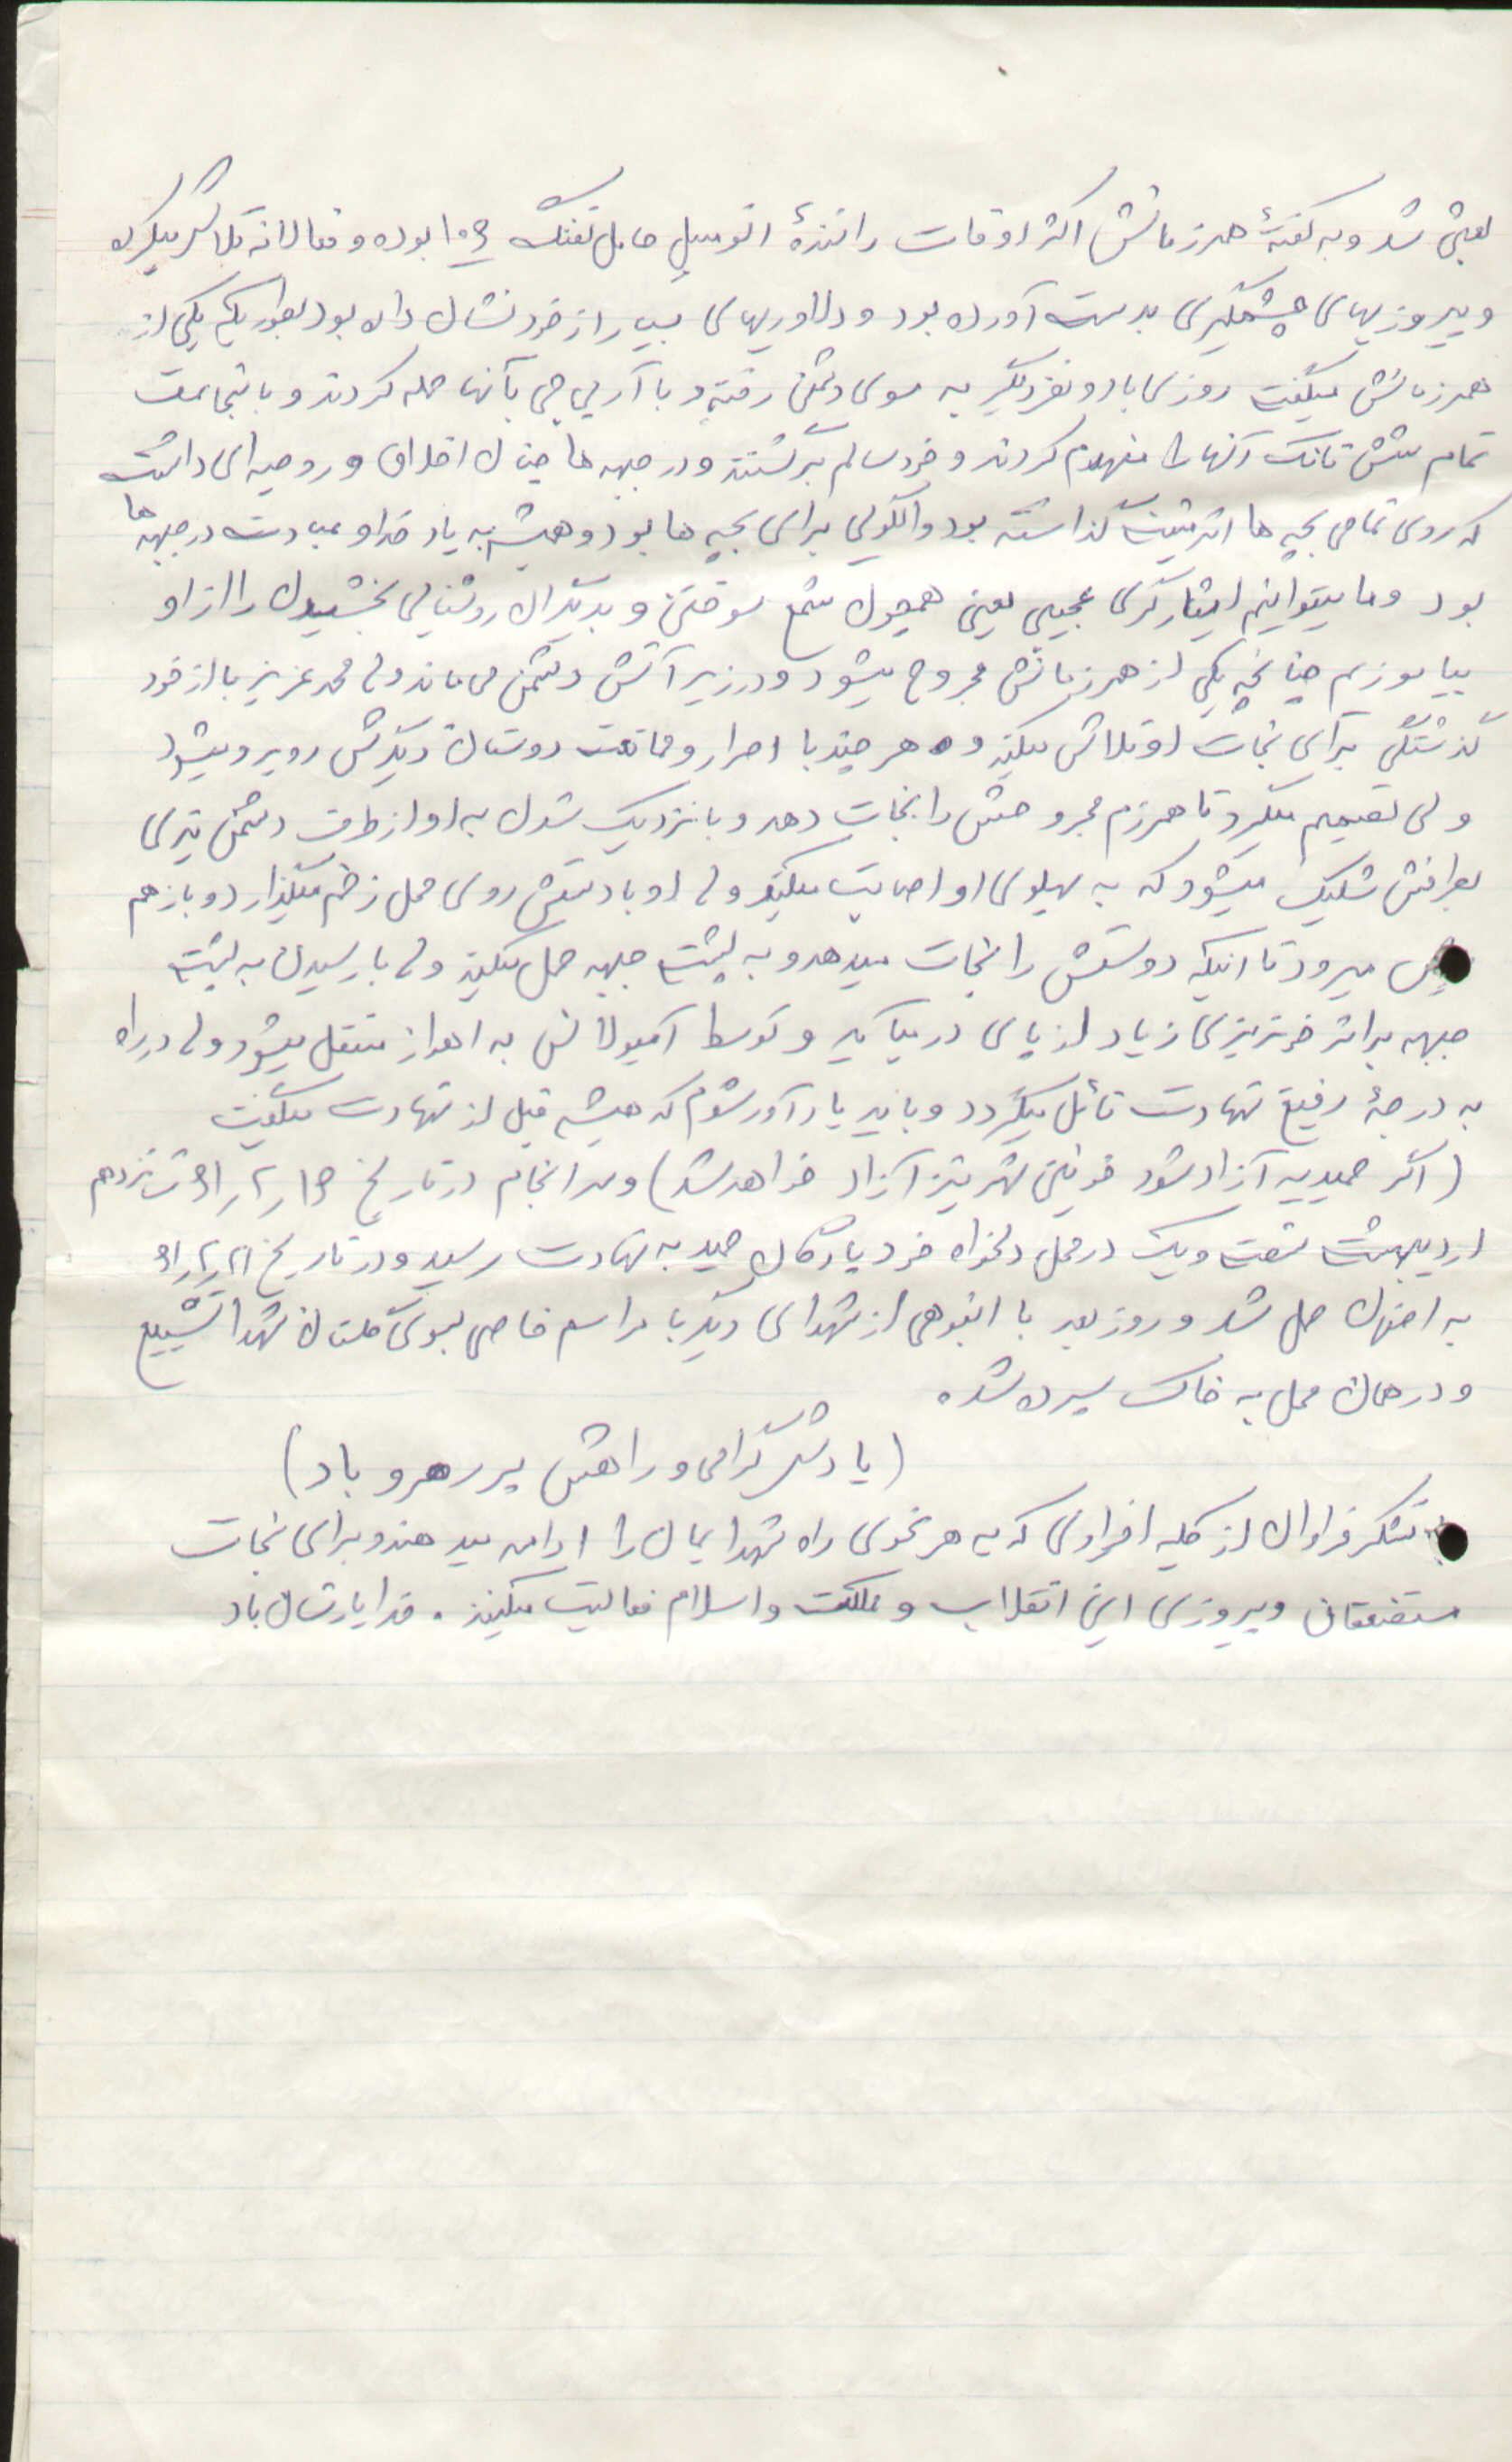 بعبثی شد و به گفتهٔ همرزمانش اکثر اوقات رانندهٔ اتومبیل حامل تفنگ ۱۰۶ بوده و فعالانه تلاش میکرد
و پیروزیهای چشمگیری بدست آورده بود و دلاوریهای بسیار از خود نشان داده بود بطوریکه یکی از
همرزمانش میگفت روزی با دو نفر دیگر به سوی دشمن رفته و با آرپی جی بآنها حمله کردند و با شجاعت
تمام شش تانک آنها را منهدم کردند و خود سالم برگشتند و در جبهه ها چنان اخلاق و روحیه ای داشت
که روی تمامی بچه ها اثر مثبت گذاشته بود و الگوئی برای بچه ها بود و همیشه به یاد خدا و عبادت در جبهه ها
بود و ما میتوانیم ایثارگری عجیبی یعنی همچون شمع سوختن و بدیگران روشنایی بخشیدن را از او
بیاموزیم چنانچه یکی از همرزمانش مجروح میشود و در زیر آتش دشمن می ماند ولی محمد عزیز با از خود
گذشتگی برای نجات او تلاش میکند و هر چند با اصرار و ممانعت دوستان دیگرش روبرو میشود
ولی تصمیم میگیرد تا همرزم مجروحش را نجات دهد و با نزدیک شدن به او از طرف دشمن تیری
بطرفش شلیک میشود که به پهلوی او اصابت میکند ولی او با دستش روی محل زخم میگذارد و باز هم
پیش میرود تا اینکه دوستش را نجات میدهد و به پشت جبهه حمل میکند ولی با رسیدن به پشت
جبهه بر اثر خونریزی زیاد از پای در میآید و توسط آمبولانس به اهواز منتقل میشود ولی در راه
به درجهٔ رفیع شهادت نائل میگردد و باید یادآور شوم که همیشه قبل از شهادت میگفت
(اگر حمیدیه آزاد شود خونین شهر نیز آزاد خواهد شد) و سرانجام در تاریخ ۶۱/۲/۱۶ شانزدهم
اردیبهشت شصت و یک در محل دلخواه خود پادگان حمید به شهادت رسید و در تاریخ ۶۱/۲/۲۱
به اصفهان حمل شد و روز بعد با انبوهی از شهدای دیگر با مراسم خاصی بسوی گلستان شهدا تشییع
و در همان محل به خاک سپرده شد.
(یادش گرامی و راهش پر رهرو باد)
با تشکر فراوان از کلیه افرادی که به هر نحوی راه شهدایمان را ادامه میدهند و برای نجات
مستضعفان و پیروزی این انقلاب و مملکت و اسلام فعالیت میکنند. خدا یارتان باد